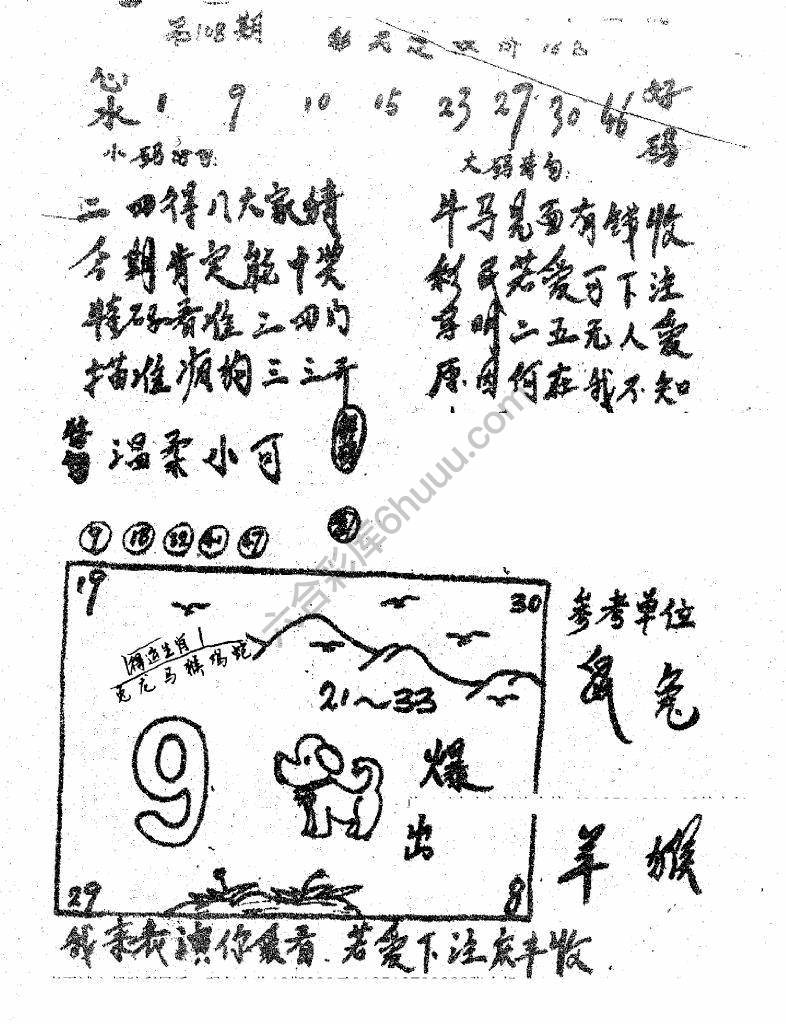 第108期
心水 1 9 10 15 23 27 30 46 好码
小码诗句
大码诗句
二四得八大家猜
今期肯定能中奖
特码看准三四门
描准病狗三三开
牛马见面有钱收
彩民若爱可下注
导明二五无人爱
原因何在我不知
温柔小可
9 18 32 41 47
19
30
相近生肖
兔龙马猴鸡蛇
21～33
9
爆出
29
8
参考单位
鼠 兔
羊 猴
我来表演你最看.若爱下注庆丰收.
六合彩库6huuu.com